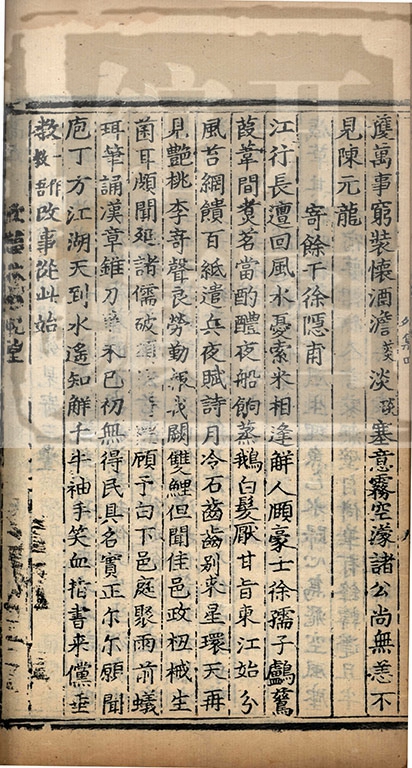 萬事窮裝懷酒澹菼淡琰塞意霧空濛諸公尚無恙不
見陳元龍
寄餘干徐隱甫
江行長邅回風水憂索米相逢解人頤豪士徐孺子鸕鶿
葭葦間煑茗當酌醴夜船餉蒸鵝白髮厭甘旨東江始分
風苔網饋百紙遣兵夜賦詩月冷石齒齒別來星環天再
見艷桃李音聲良勞勤報我闕雙鯉但聞佳邑政杻械生
菌耳頗聞延諸儒破顧予白下邑庭聚雨前蟻
珥筆誦漢章錐刀爭未已初無得民具名實正尔尔願聞
庖丁方江湖天到水遙知解千牛袖手笑血指書来儻垂
教斵政事從此始